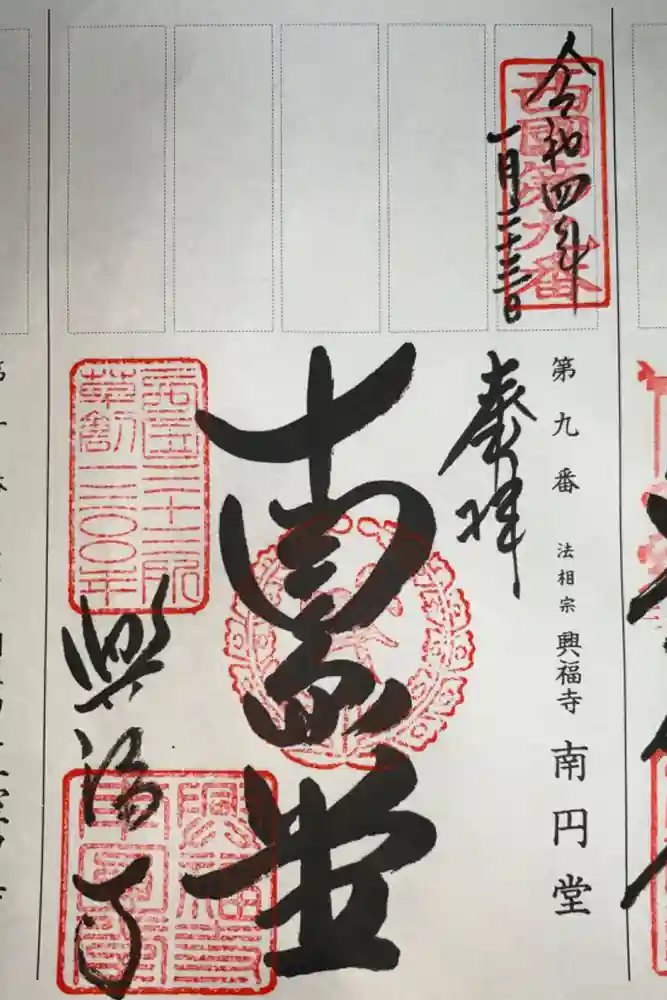 第九番 法相宗 興福寺 南円堂
西國第九番
令和四年
一月二十三日
奉拝
南円堂
西国三十三所
草創一三〇〇年
興福寺
興福寺
南円堂